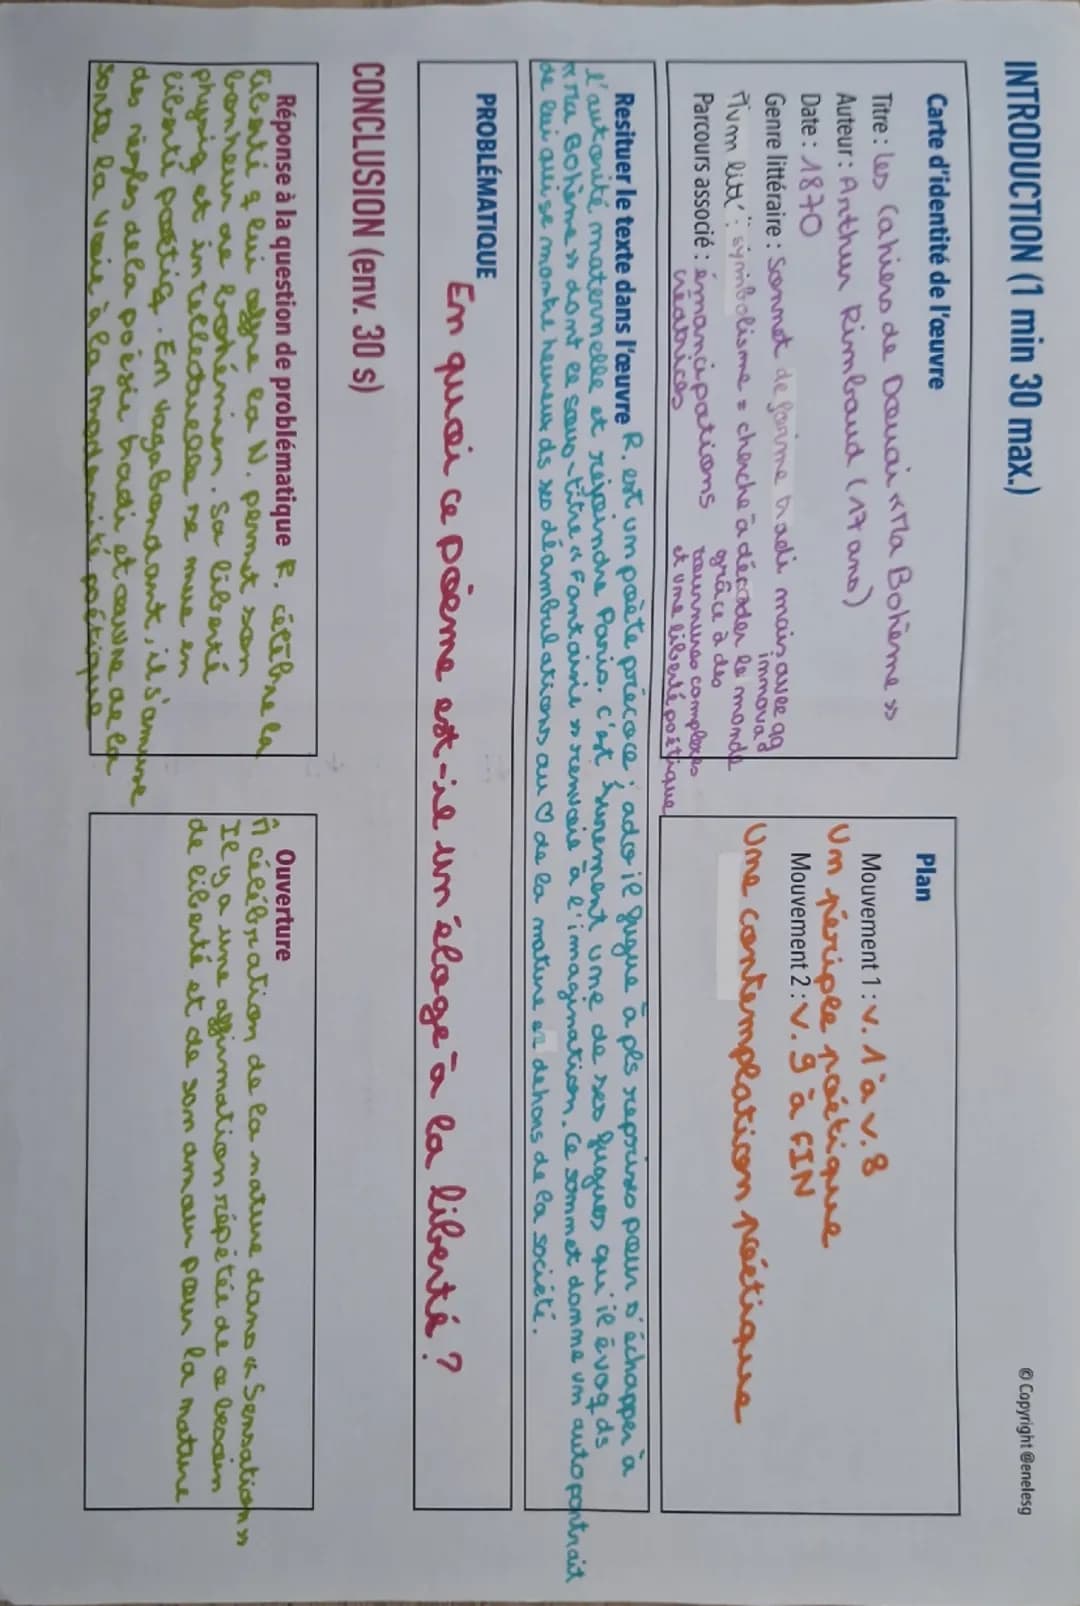 INTRODUCTION (1 min 30 max.)
© Copyright @enelesg
Carte d'identité de l'œuvre
Titre : Les Cahiers de Douai « Ma Bohème »
Auteur : Arthur Rimbaud (17 ans)
Date : 1870
Genre littéraire : Sonnet de forme tradi mais avec qq
innova°
Mvm litt' : symbolisme = cherche à décoder le monde
grâce à des
tournures complexes
et une liberté poétique
Parcours associé : émancipations
créatrices
Plan
Mouvement 1 : v. 1 à v. 8
Un périple poétique
Mouvement 2 : v. 9 à FIN
Une contemplation poétique
Resituer le texte dans l'œuvre R. est un poète précoce ; ado il fugue à pls reprises pour s'échapper à
l'autorité maternelle et rejoindre Paris. C'est surement une de ses fugues qu'il évoq ds
« Ma Bohème » dont le sous-titre « Fantaisie » renvoie à l'imagination. Ce sonnet donne un autoportrait
de lui qui se montre heureux ds ses déambulations au ♡ de la nature en dehors de la société.
PROBLÉMATIQUE
En quoi ce poème est-il un éloge à la liberté ?
CONCLUSION (env. 30 s)
Réponse à la question de problématique R. célèbre la
liberté q lui offre la N. permet son
bonheur de bohémien. Sa liberté
physiq et intellectuelle se mue en
liberté poétiq. En vagabondant, il s'amuse
des règles de la poésie tradi et œuvre de la
sorte la voie à la modernité poétique
Ouverture
m̂ célébration de la nature dans « Sensation »
Il y a une affirmation répétée de ce besoin
de liberté et de son amour pour la nature